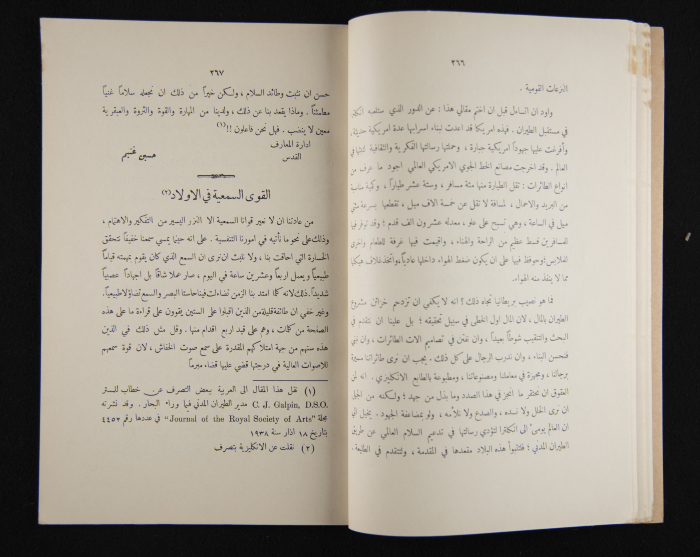 ٢٦٦
النزعات القومية .
واود ان اتساءل قبل ان اختم مقالي هذا : عن الدور الذي ستلعبه انكلترا
في مستقبل الطيران . فهذه امريكا قد اعدت لبناء اسرابها عدة امريكية حديثة،
وأفرغت عليها جهوداً امريكية جبارة ، وحملتها رسالتها الفكرية والثقافية لتبثها في
العالم . وقد اخرجت مصانع الخط الجوي الامريكي العالمي اجود ما عرف من
انواع الطائرات : تقل الطيارة منها مئة مسافر ، وستة عشر طياراً ، وكمية مناسبة
من البريد والاحمال ، لمسافة لا تقل عن خمسة آلاف ميل ، تقطعها بسرعة مئتي
ميل في الساعة ، وهي تسبح على علو ، معدله عشرون الف قدم ؛ وقد توفر فيها
للمسافرين قسط عظيم من الراحة والهناء ، واقيمت فيها غرفة للطعام واخرى
للملابس وحوفظ فيها على ان يكون ضغط الهواء داخلها عادياً، واتخذ غلاف هيكلها
مما لا ينفذ منه الهواء.
فما هو نصيب بريطانيا تجاه ذلك ؟ انه لا يكفي ان تزدحم خزائن مشروع
الطيران بالمال ، لان المال اول الخطى في سبيل تحقيقه ؛ بل علينا ان نتقدم في
البحث والتنقيب شوطاً بعيداً ، وان نفتن في تصاميم الات الطائرات ، وان نبني
فنحسن البناء ، وان ندرب الرجال على كل ذلك . يجب ان نرى طائراتنا مسيرة
برجالنا ، ومجهزة في معاملنا ومصنوعاتنا ، ومطبوعة بالطابع الانكليزي . انه لمن
العقوق ان نحتقر ما انجز في هذا الصدد وما بذل من جهد ؛ ولكنه من الجلل
ان نرى الخلل ولا نسده ، والصدع ولا نلأمه ، ولو بمضاعفة الجهود . يخيل الي
ان العالم يومئ الى انكلترا لتؤدي رسالتها في تدعيم السلام العالمي عن طريق
الطيران المدني ؛ فلتتبوأ هذه البلاد مقعدها في المقدمة ، ولتتقدم في الطليعة.
٢٦٧
حسن ان تثبت وطائد السلام ، ولكن خيراً من ذلك ان نجعله سلاماً غنياً
مطمئناً . وماذا يقعد بنا عن ذلك ، ولدينا من المهارة والقوة والثروة والعبقرية
معين لا ينضب . فهل نحن فاعلون !!(١)
ادارة المعارف
القدس
حسين غنيم
القوى السمعية في الاولاد (٢)
من عادتنا ان لا نعير قوانا السمعية الا النزر اليسير من التفكير والاهتمام ،
وذلك على نحو ما نأتيه في امورنا التنفسية . على انه حينما يمسي سمعنا خفيفاً تتحقق
الخسارة التي احاقت بنا ، ولا نلبث ان نرى ان السمع الذي كان يقوم بمهمته قياماً
طبيعياً ويصل اربعاً وعشرين ساعة في اليوم ، صار عملا شاقاً بل اجهاداً عصبياً
شديداً. ذلك لانه كلما امتد بنا الزمن تضاءلت فينا حاستا البصر والسمع تضاؤلا طبيعياً.
وغير خفي ان طائفة قليلة من الذين اقبلوا على الستين يقوون على قراءة ما على هذه
الصفحة من كلمات ، وهم على قيد اربع اقدام منها . وقل مثل ذلك في الذين
هذه سنهم من جهة امتلاكهم المقدرة على سمع صوت الخفاش ، لان قوة سمعهم
للاصوات العالية في درجتها قضي عليها قضاء مبرماً
(١) نقل هذا المقال الى العربية ببعض التصرف عن خطاب للمستر
C. J. Galpin, D.S.O. مدير الطيران المدني فيما وراء البحار . وقد نشرته
مجلة "Journal of the Royal Society of Arts" في عددها رقم ٤٤٥٢
بتاريخ ١٨ اذار سنة ١٩٣٨
(٢) نقلت عن الانكليزية بتصرف